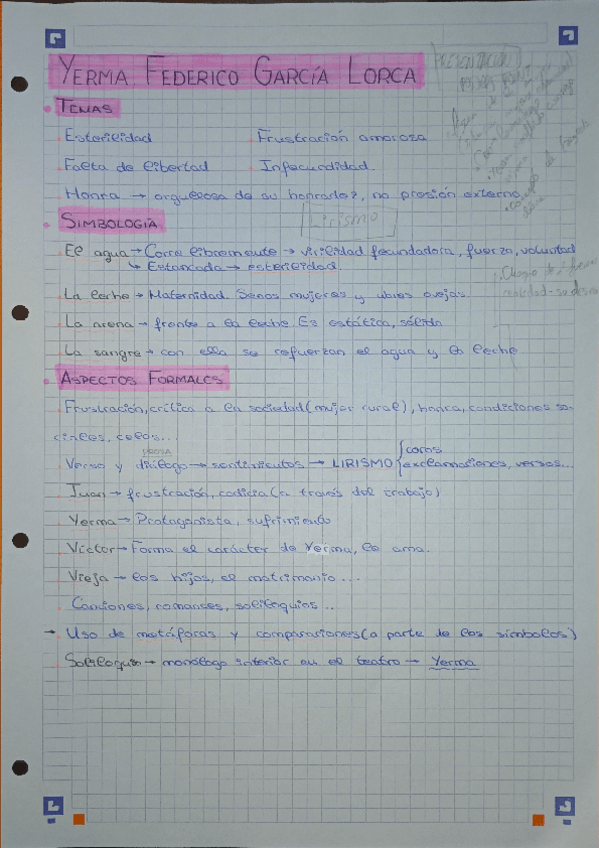 YERMA, FEDERICO GARCÍA LORCA
PRESENTACIÓN
TEMAS
Esterilidad Frustración amorosa
Falta de libertad Infecundidad.
Honra → orgullosa de su honradez, no presión externa.
Lirismo
SIMBOLOGÍA
El agua → Corre libremente → virilidad fecundadora, fuerza, voluntad
↳ Estancada → esterilidad.
La leche → Maternidad. Senos mujeres y ubres ovejas.
La arena → frente a la leche. Es estática, sólida
La sangre → con ella se refuerzan el agua y la leche
ASPECTOS FORMALES
Frustración, crítica a la sociedad (mujer rural), honra, condiciones so-
ciales, celos...
Verso y diálogo → sentimientos → LIRISMO { coros
exclamaciones, versos...
Juan → frustración, codicia (a través del trabajo)
Yerma → Protagonista, sufrimiento
Víctor → Forma el carácter de Yerma, le ama.
Vieja → los hijos, el matrimonio...
Canciones, romances, soliloquios...
→ Uso de metáforas y comparaciones (a parte de los símbolos)
Soliloquio → monólogo interior en el teatro → Yerma